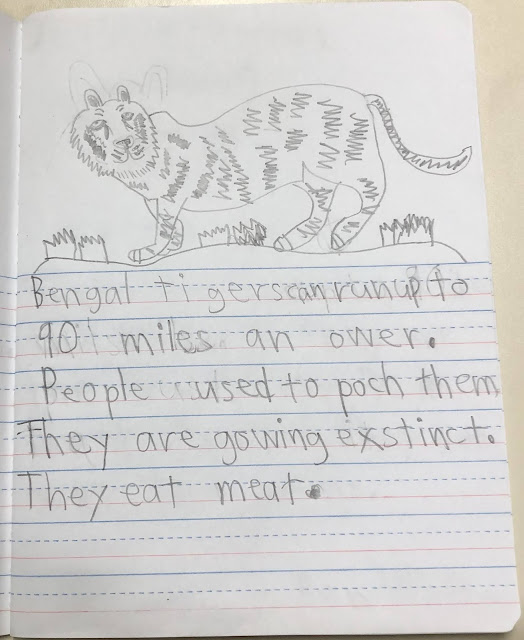 Bengal tigers can run up to
90 miles an ower.
People used to poch them
They are gowing exstinct.
They eat meat.